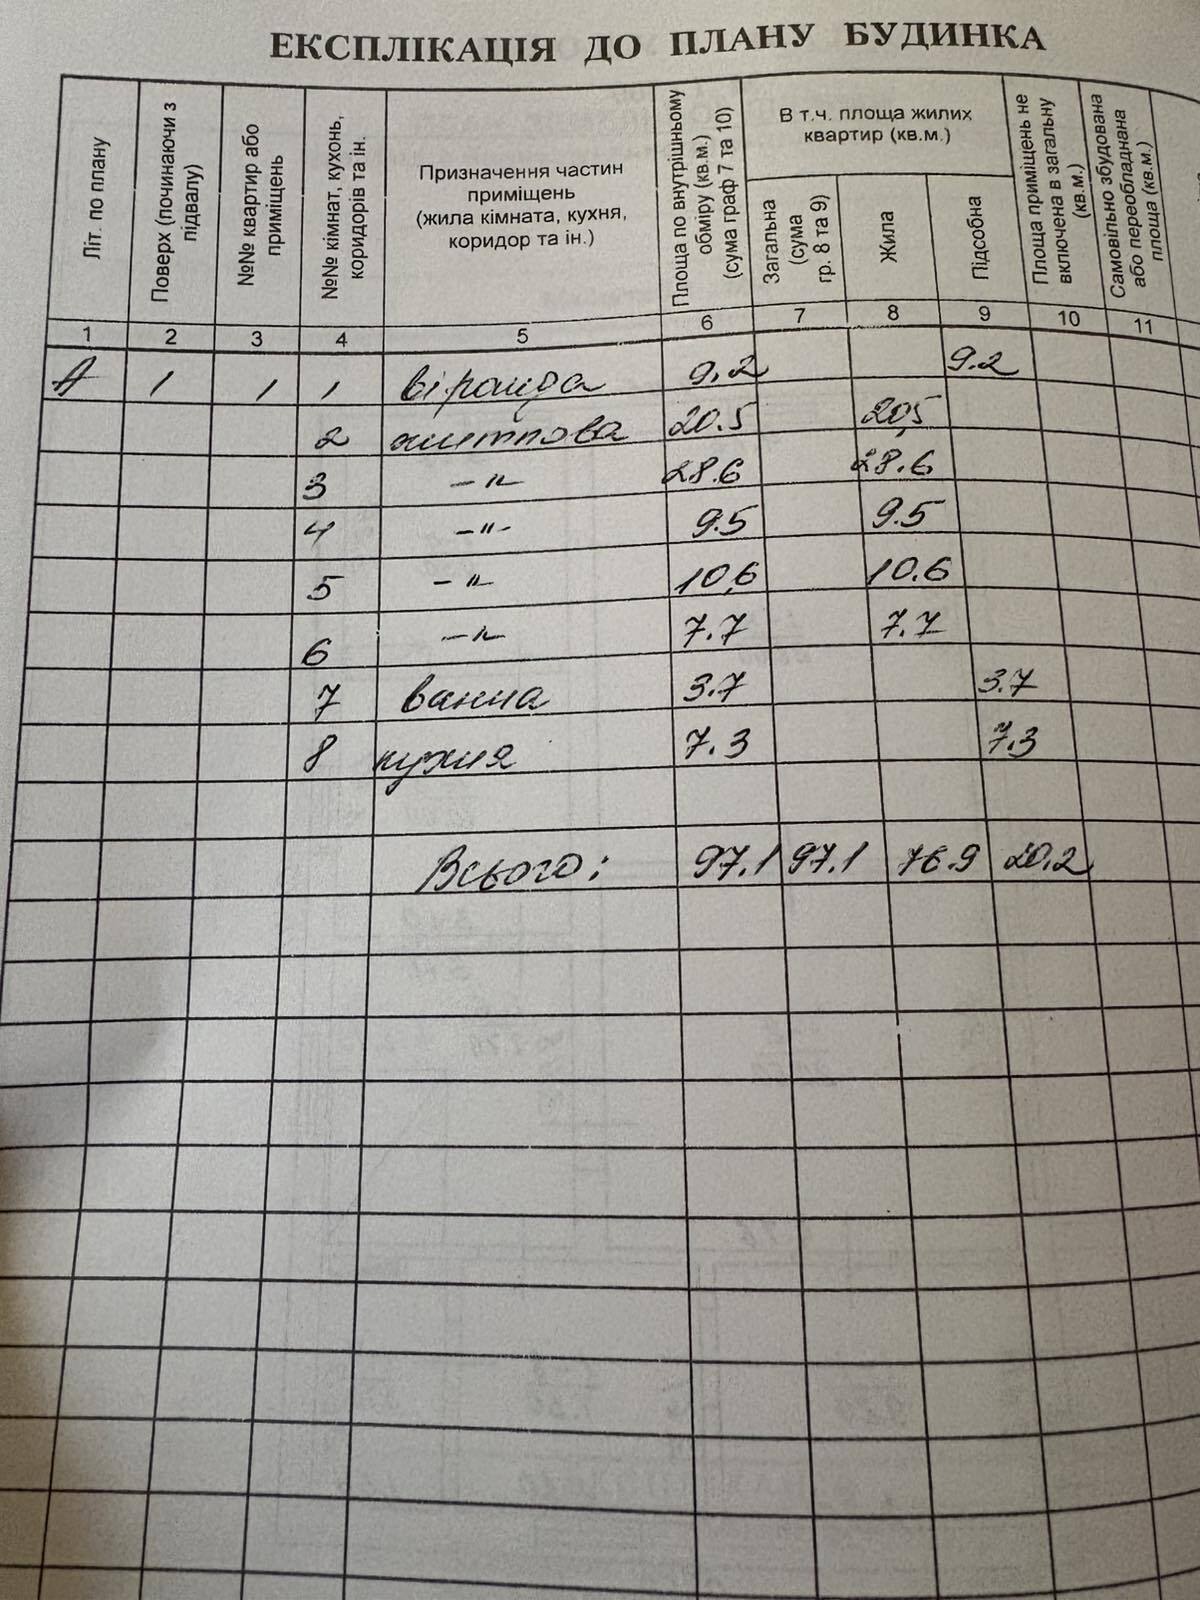 ЕКСПЛІКАЦІЯ ДО ПЛАНУ БУДИНКА
Літ. по плану
Поверх (починаючи з підвалу)
№№ квартир або приміщень
№№ кімнат, кухонь, коридорів та ін.
Призначення частин приміщень (жила кімната, кухня, коридор та ін.)
Площа по внутрішньому обміру (кв.м.) (сума граф 7 та 10)
В т.ч. площа жилих квартир (кв.м.)
Загальна (сума гр. 8 та 9)
Жила
Підсобна
Площа приміщень не включена в загальну (кв.м.)
Самовільно збудована або переобладнана площа (кв.м.)
1 2 3 4 5 6 7 8 9 10 11
А 1 1 1 віранда 9.2 9.2
2 життєва 20.5 20,5
3 -"- 28.6 28.6
4 -"- 9.5 9.5
5 -"- 10,6 10.6
6 -"- 7.7 7.7
7 ванна 3.7 3.7
8 кухня 7.3 7.3
Всього: 97.1 97.1 76.9 20.2